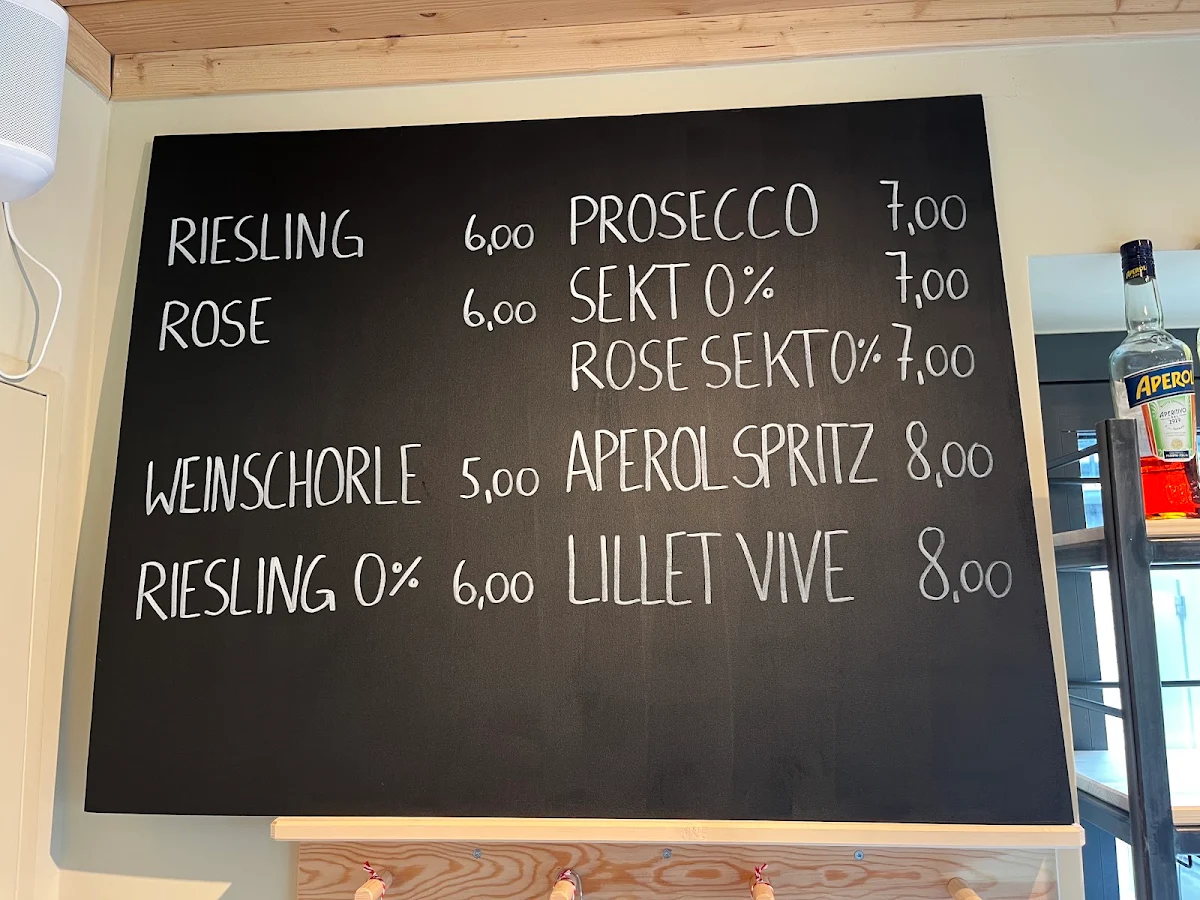 RIESLING 6,00
ROSE 6,00
WEINSCHORLE 5,00
RIESLING 0% 6,00
PROSECCO 7,00
SEKT 0% 7,00
ROSE SEKT 0% 7,00
APEROL SPRITZ 8,00
LILLET VIVE 8,00
APEROL
APEROL
APERITIVO